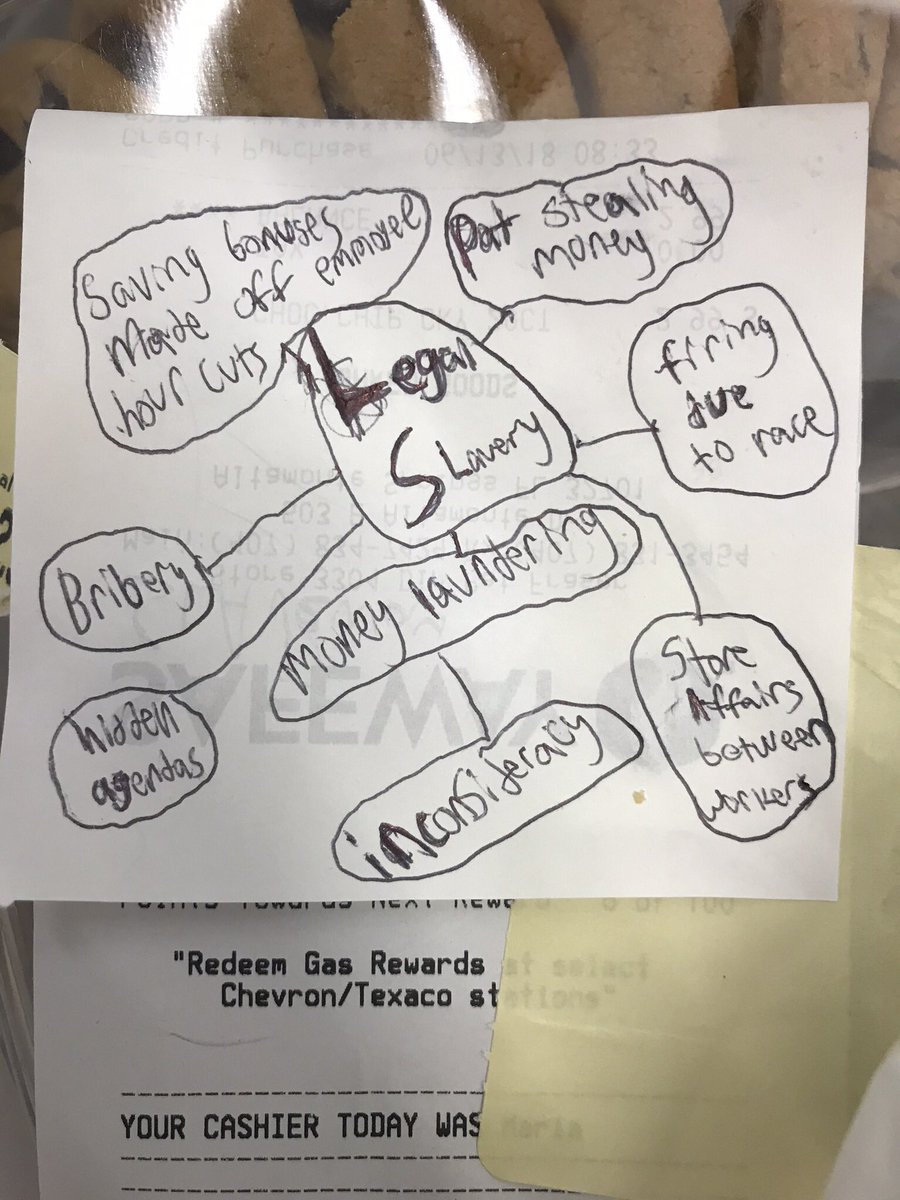 Credit Purchase 06/13/18 08:33
Saving bonuses
Made off employee
hour cuts
Pat stealing
money
Legal
Slavery
firing
due
to race
Altamonte Springs FL 32701
Bribery
Money laundering
hidden
agendas
Store
Affairs
between
workers
inconsideracy
SAFEWAY
Points Towards Next Reward 0 of 100
"Redeem Gas Rewards at select
Chevron/Texaco stations"
YOUR CASHIER TODAY WAS Maria